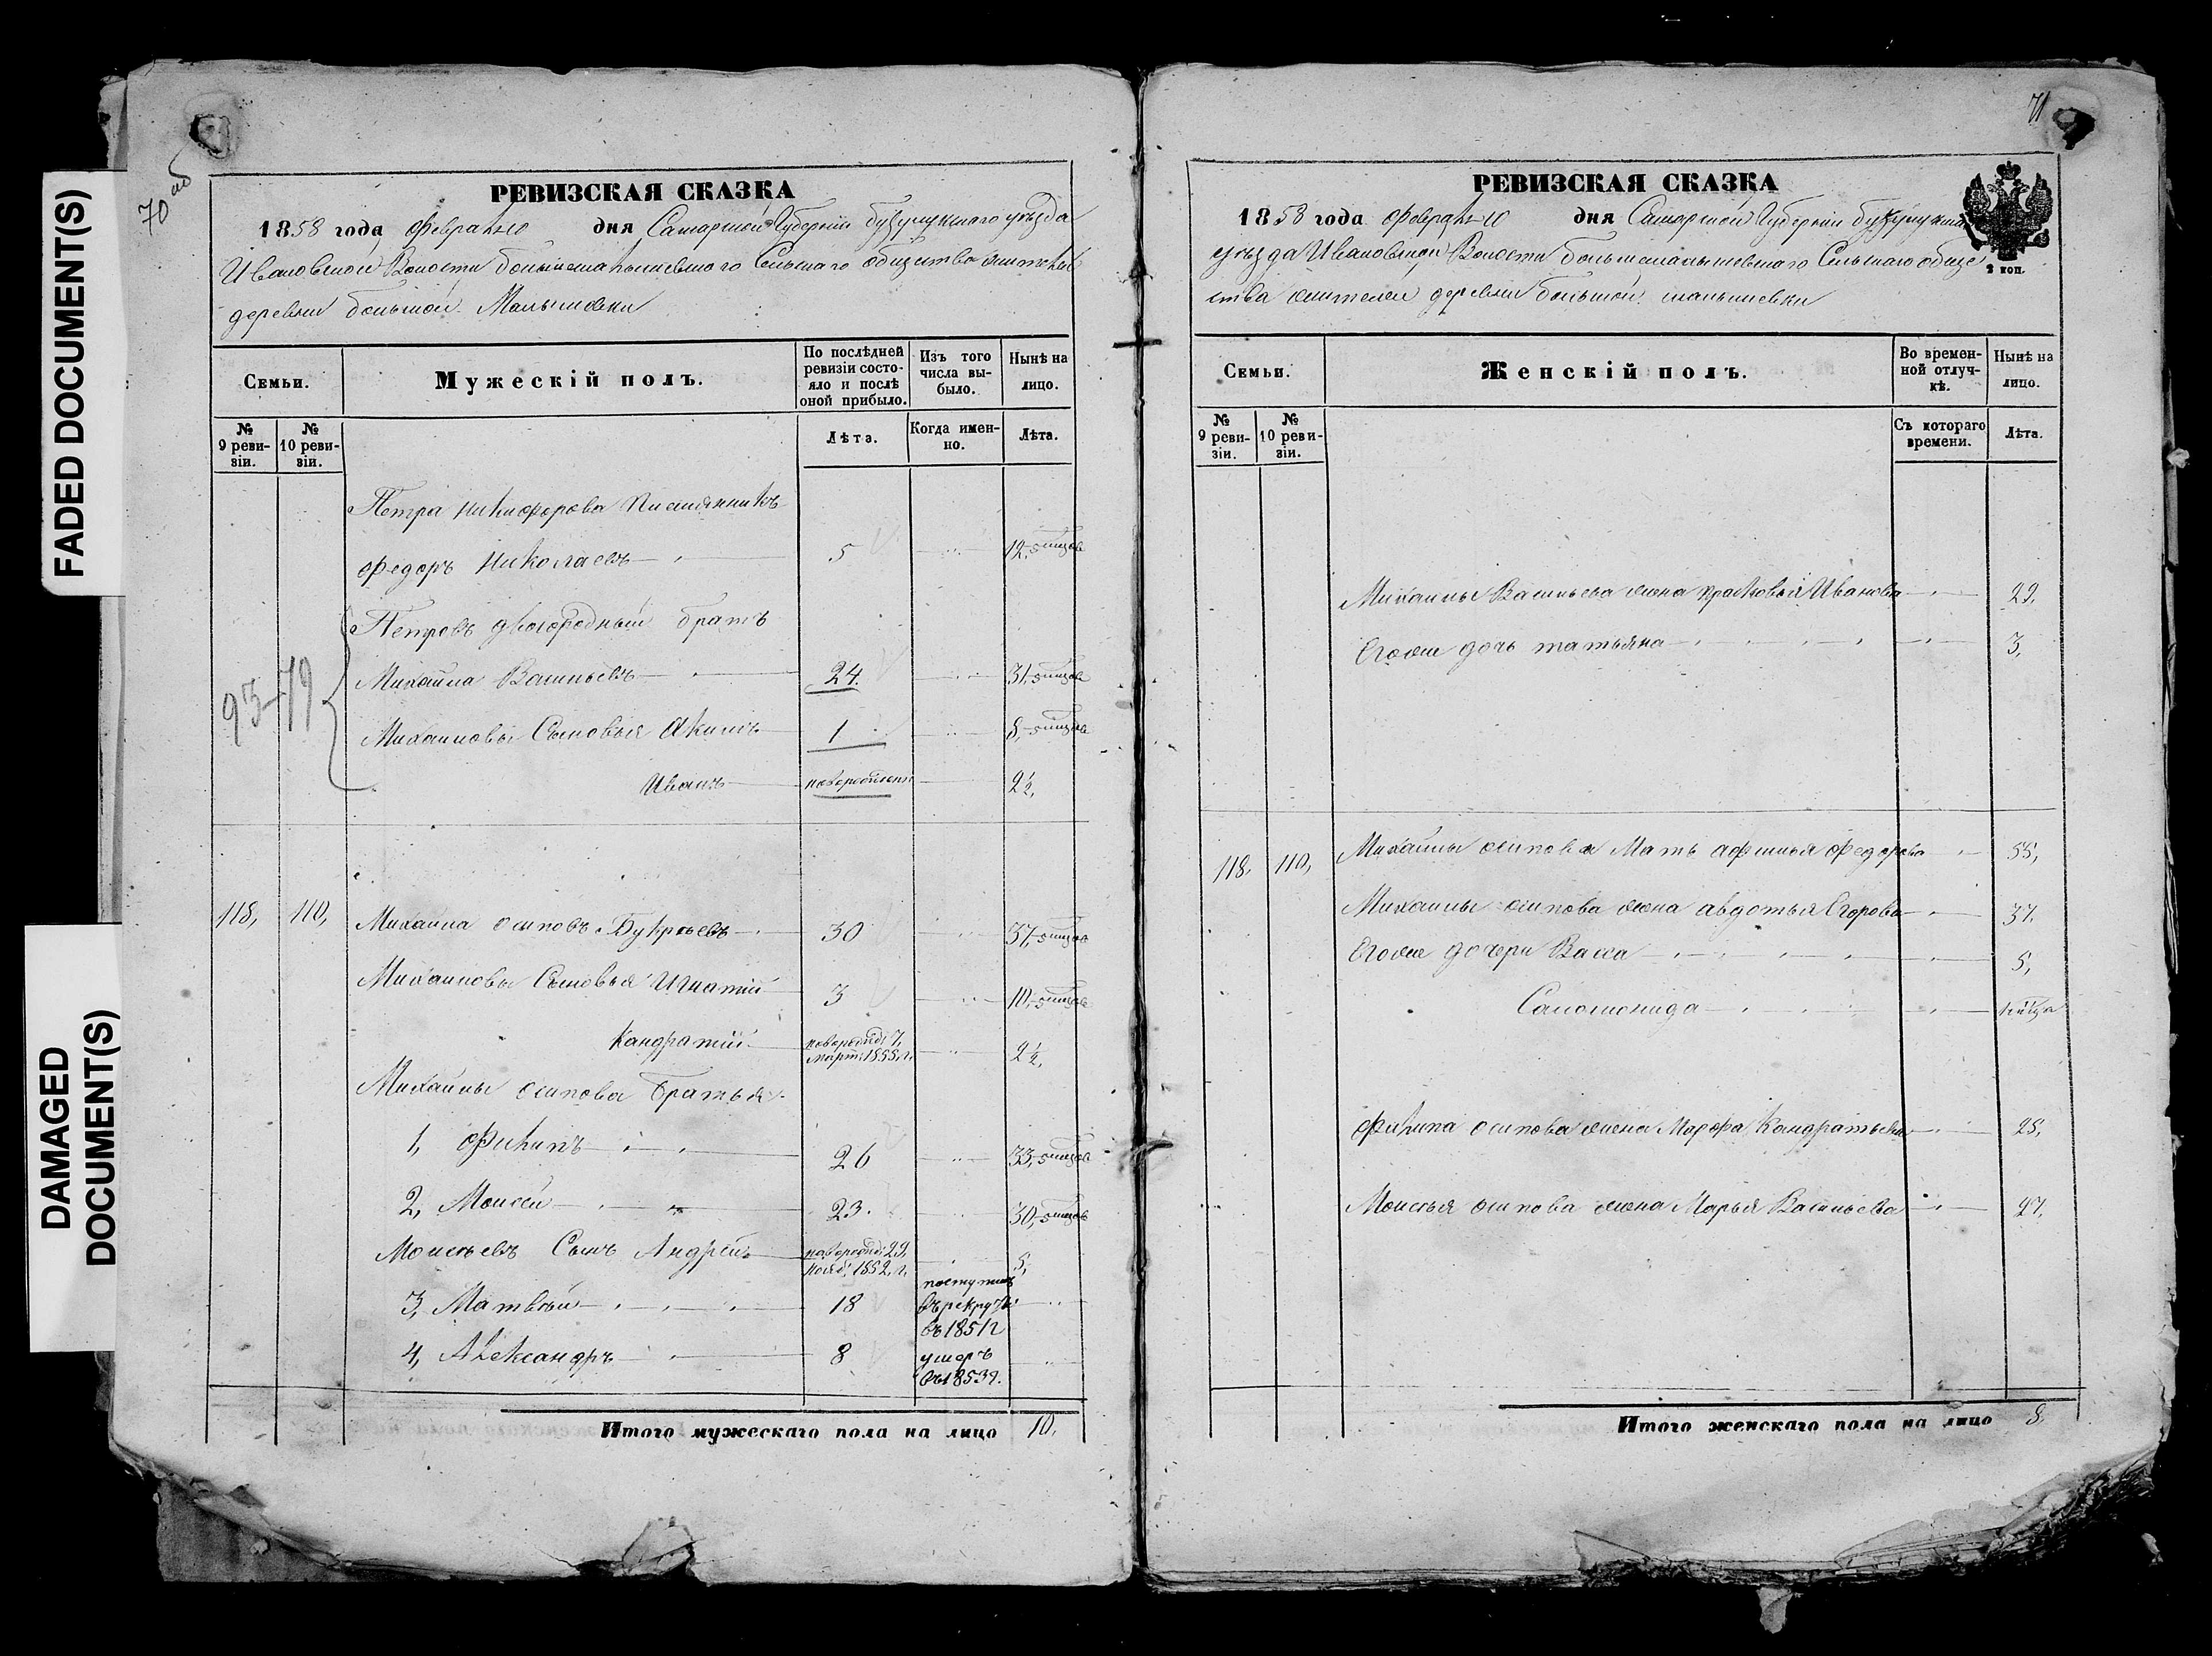 FADED DOCUMENT(S)
DAMAGED
DOCUMENT(S)
70 об
РЕВИЗСКАЯ СКАЗКА
1858 года февраля 10 дня Самарской Губерніи бузулукскаго уѣзда
Ивановской Волости большемалышевскаго Сельскаго общества жителей
деревни большой Малышевки
Семьи.
Мужескій полъ.
По послѣдней ревизіи состояло и послѣ оной прибыло.
Изъ того числа выбыло.
Нынѣ на лицо.
№ 9 ревизіи.
№ 10 ревизіи.
Лѣта.
Когда именно.
Лѣта.
Петра никифорова племянникъ
федоръ николаевъ 5 12,
Петровъ двоюродный братъ
93-79
Михайла Васильевъ 24. 31,
Михайловы Сыновья Акимъ 1 8,
Иванъ новорожденъ 2 1/2,
118, 110, Михайла осиповъ Букреевъ 30 37,
Михайловы Сыновья Игнатій 3 10,
Кандратій новорожд: 7, март: 1855, г. 2 1/2,
Михайлы осипова братья:
1, Филипъ 26 33,
2, Моисей 23. 30,
Моисѣевъ Сынъ Андрей новорожд: 29, нояб: 1852, г. 5,
3, Матвѣй 18 поступилъ въ рекруты въ 1851 г
4, Александръ 8 умеръ въ 1853 г.
Итого мужескаго пола на лицо 10.
71
РЕВИЗСКАЯ СКАЗКА
2 коп.
1858 года февраля 10 дня Самарской Губерніи бузулукскаго
уѣзда Ивановской Волости большемалышевскаго Сельскаго обще
ства жителей деревни большой малышевки
Семьи.
Женскій полъ.
Во временной отлучкѣ.
Нынѣ на лицо.
№ 9 ревизіи.
№ 10 ревизіи.
Съ котораго времени.
Лѣта.
Михайлы Васильева жена прасковья Иванова 29.
Егоже дочь татьяна 3,
118. 110, Михайлы осипова Мать афимья федорова 55,
Михайлы осипова жена авдотья Егорова 37.
Егоже дочери Васса 5,
Саломонида
филипа осипова жена Марфа Кандратьева 25,
Моисѣя осипова жена Марья Васильева 27,
Итого женскаго пола на лицо 8.